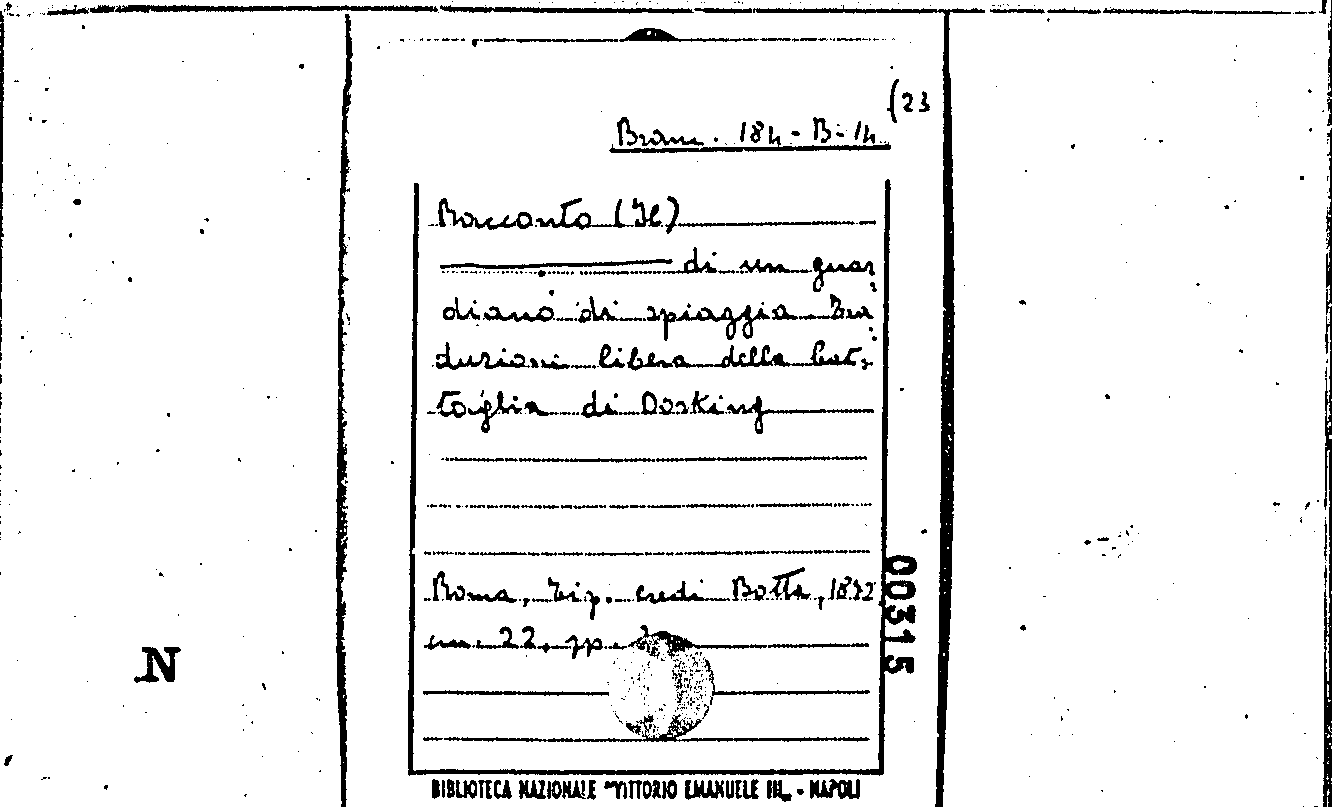 (23
Branc. 184-B-14
Racconto (Il)
di un guar=
diano di spiaggia. Tra=
duzioni libera della bat=
taglia di Dorking
Roma, tip. eredi Botta, 1872
cm. 22. pp.
00315
N
BIBLIOTECA NAZIONALE "VITTORIO EMANUELE III" - NAPOLI